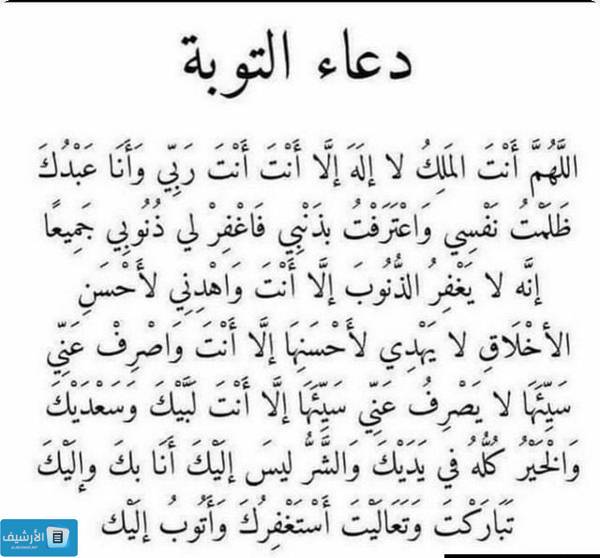 دعاء التوبة
اللَّهُمَّ أَنْتَ المَلِكُ لا إلَهَ إلَّا أَنْتَ أَنْتَ رَبِّي وَأَنَا عَبْدُكَ
ظَلَمْتُ نَفْسِي وَاعْتَرَفْتُ بذَنْبِي فَاغْفِرْ لي ذُنُوبِي جَمِيعًا
إنَّه لا يَغْفِرُ الذُّنُوبَ إلَّا أَنْتَ وَاهْدِنِي لأَحْسَنِ
الأخْلَاقِ لا يَهْدِي لأَحْسَنِهَا إلَّا أَنْتَ وَاصْرِفْ عَنِّي
سَيِّئَهَا لا يَصْرِفُ عَنِّي سَيِّئَهَا إلَّا أَنْتَ لَبَّيْكَ وَسَعْدَيْكَ
وَالْخَيْرُ كُلُّهُ في يَدَيْكَ وَالشَّرُّ ليسَ إلَيْكَ أَنَا بكَ وإلَيْكَ
تَبَارَكْتَ وَتَعَالَيْتَ أَسْتَغْفِرُكَ وَأَتُوبُ إلَيْك
الأرشيف